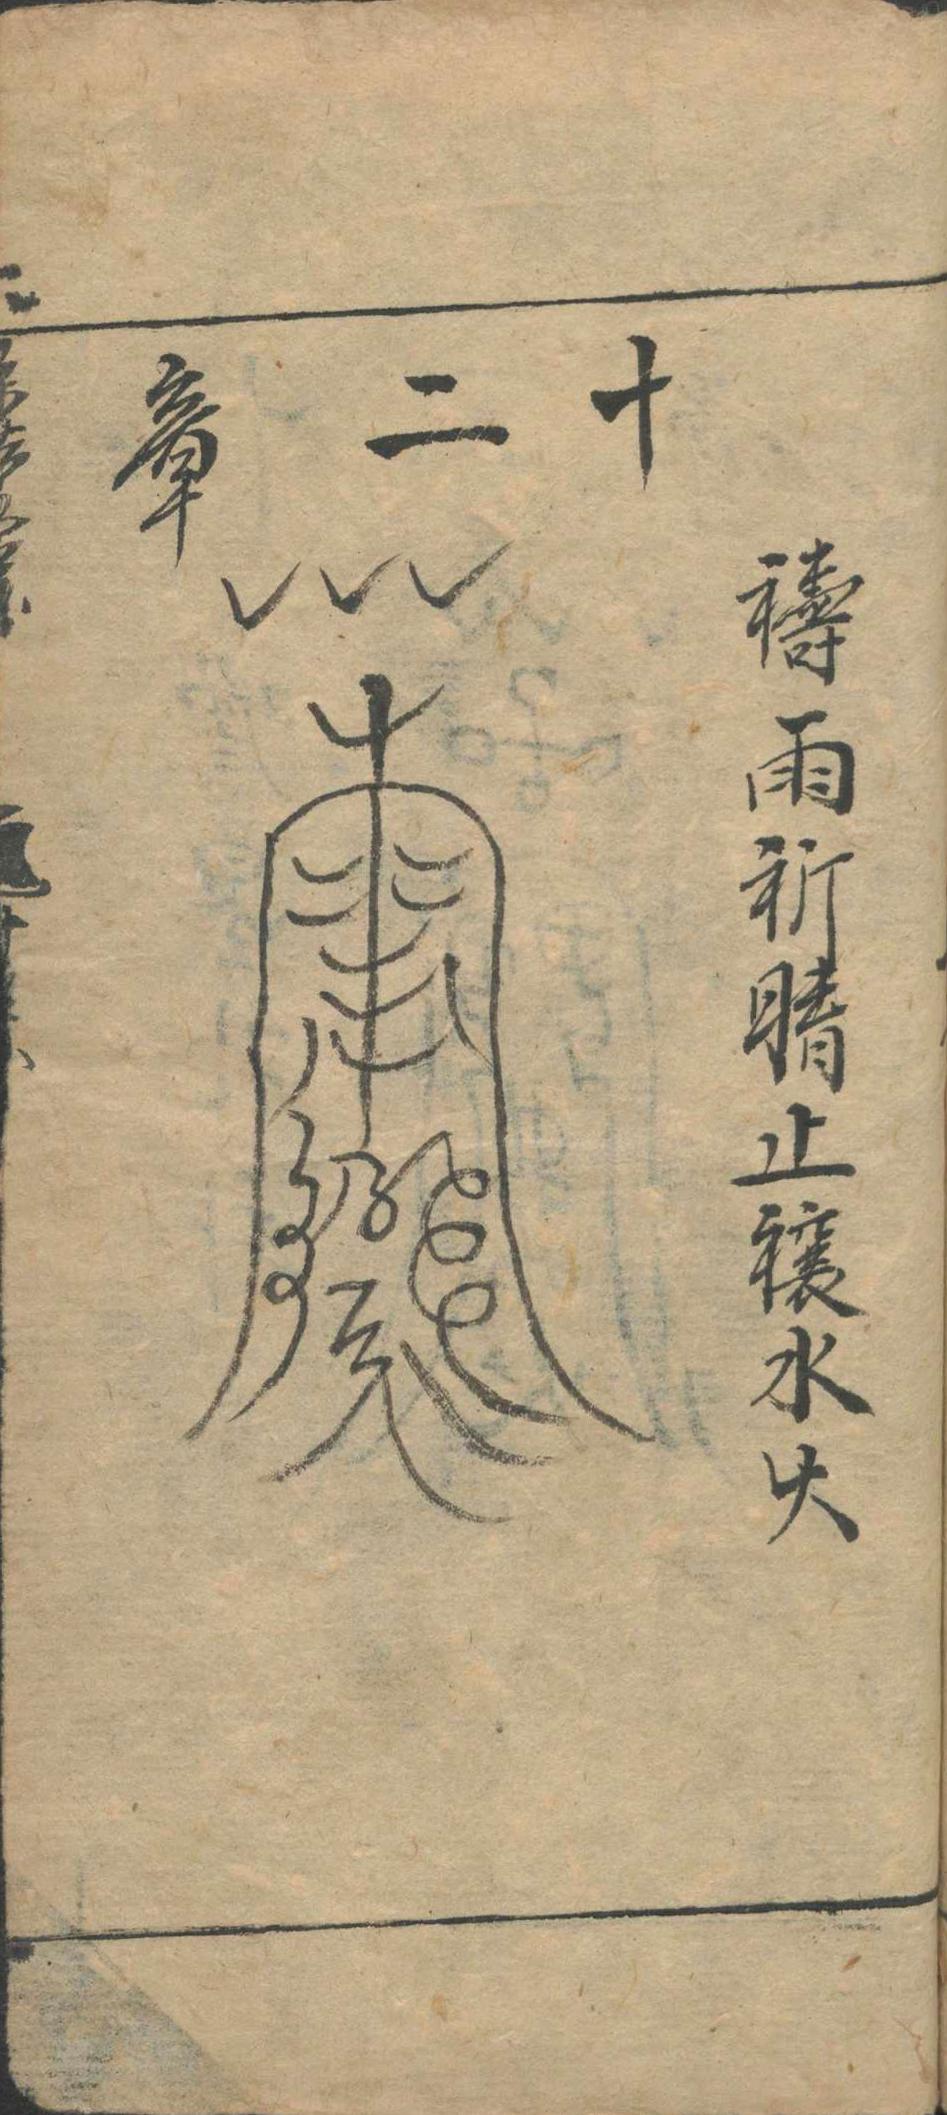 十二章
禱雨祈晴止禳水火